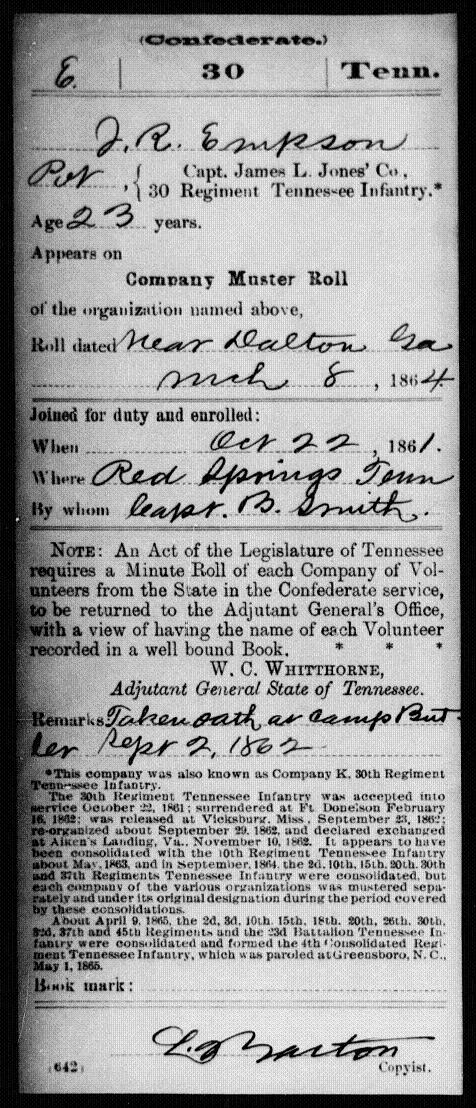 (Confederate.)
E. | 30 | Tenn.
J. R. Empson
Pvt, { Capt. James L. Jones' Co.,
30 Regiment Tennessee Infantry.*
Age 23 years.
Appears on
Company Muster Roll
of the organization named above,
Roll dated Near Dalton Ga
Mch 8, 1864
Joined for duty and enrolled:
When Oct 22, 1861.
Where Red Springs Tenn
By whom Capt. B. Smith.
NOTE: An Act of the Legislature of Tennessee
requires a Minute Roll of each Company of Vol-
unteers from the State in the Confederate service,
to be returned to the Adjutant General's Office,
with a view of having the name of each Volunteer
recorded in a well bound Book. * * *
W. C. WHITTHORNE,
Adjutant General State of Tennessee.
Remarks Taken oath at Camp But-
ler Sept 2, 1862
*This company was also known as Company K, 30th Regiment
Tennessee Infantry.
The 30th Regiment Tennessee Infantry was accepted into
service October 22, 1861; surrendered at Ft. Donelson February
16, 1862; was released at Vicksburg, Miss., September 23, 1862;
re-organized about September 29, 1862, and declared exchanged
at Aiken's Landing, Va., November 10, 1862. It appears to have
been consolidated with the 10th Regiment Tennessee Infantry
about May, 1863, and in September, 1864, the 2d, 10th, 15th, 20th, 30th
and 37th Regiments Tennessee Infantry were consolidated, but
each company of the various organizations was mustered sepa-
rately and under its original designation during the period covered
by these consolidations.
About April 9, 1865, the 2d, 3d, 10th, 15th, 18th, 20th, 26th, 30th,
32d, 37th and 45th Regiments and the 23d Battalion Tennessee In-
fantry were consolidated and formed the 4th Consolidated Regi-
ment Tennessee Infantry, which was paroled at Greensboro, N. C.,
May 1, 1865.
Book mark:
Barton
(642) Copyist.